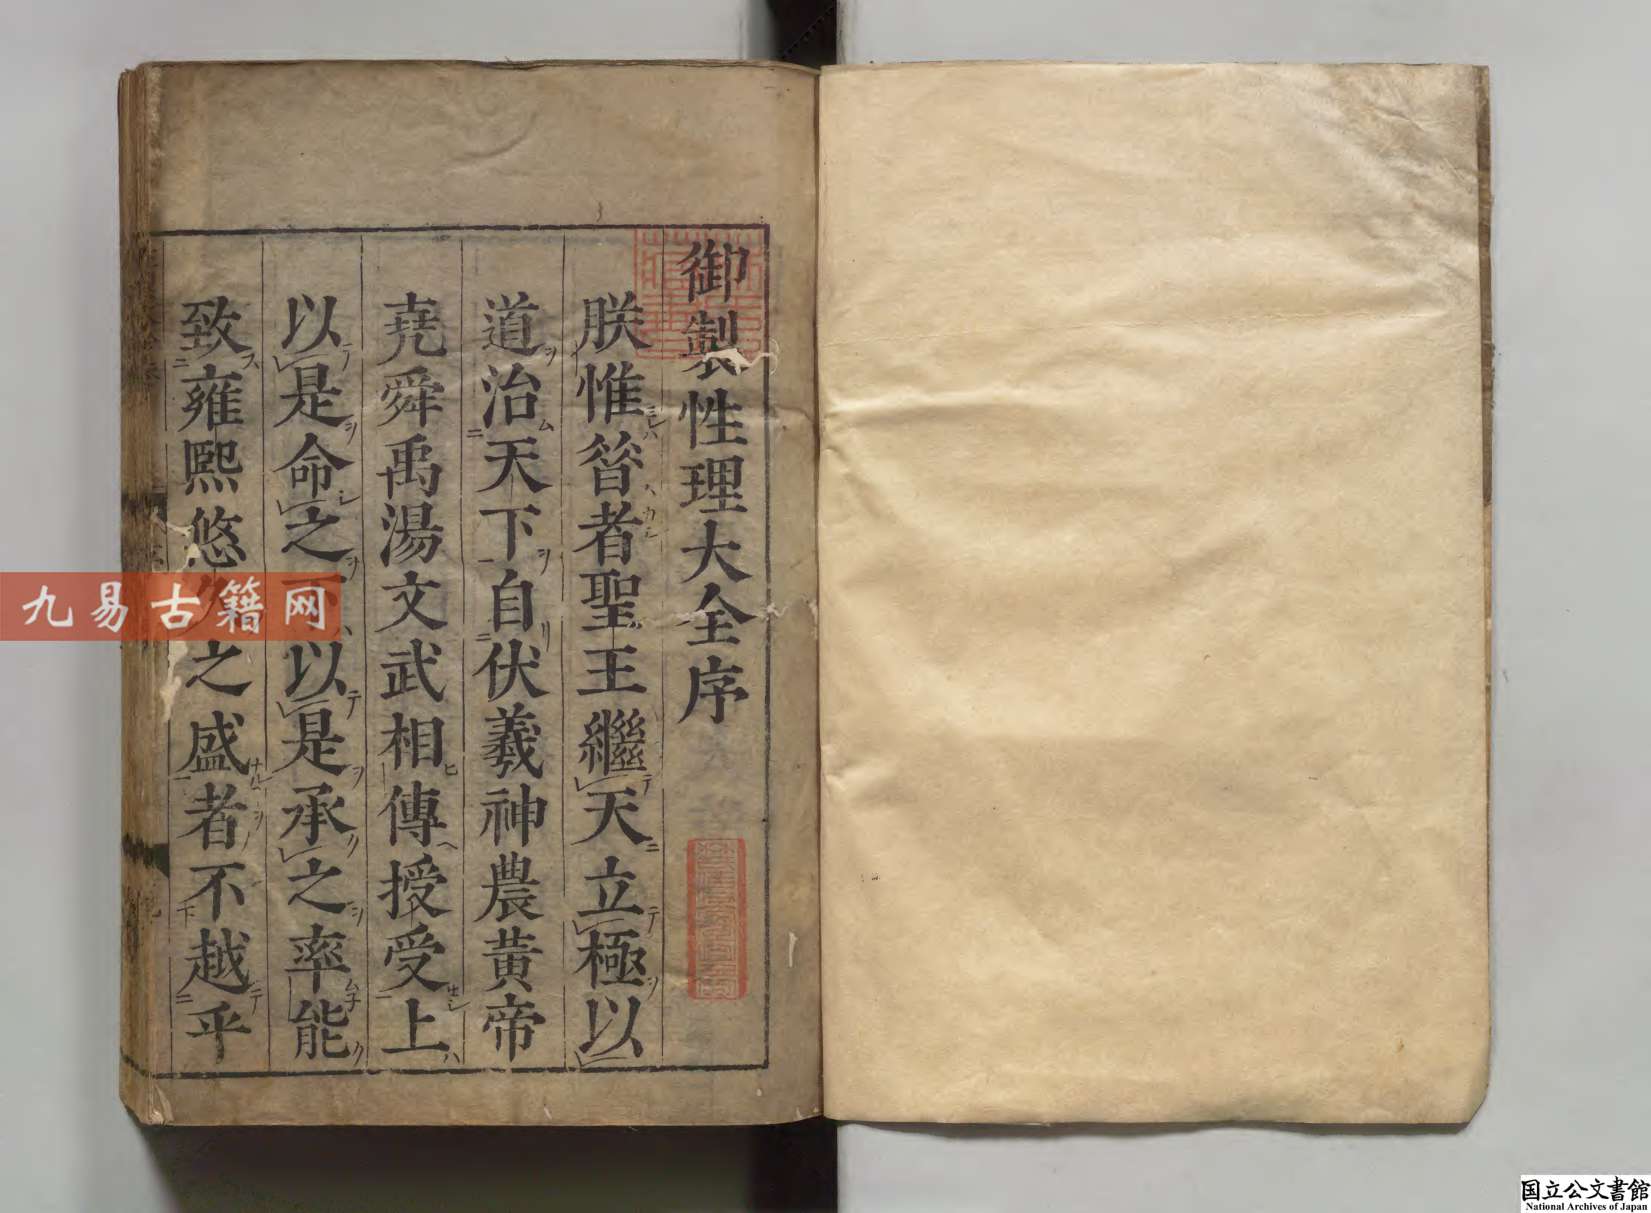 御製性理大全序
朕惟昝者聖王繼天立極以
道治天下自伏羲神農黃帝
堯舜禹湯文武相傳授受上
以是命之下以是承之率能
致雍熙悠久之盛者不越乎
九易古籍网
国立公文書館
National Archives of Japan